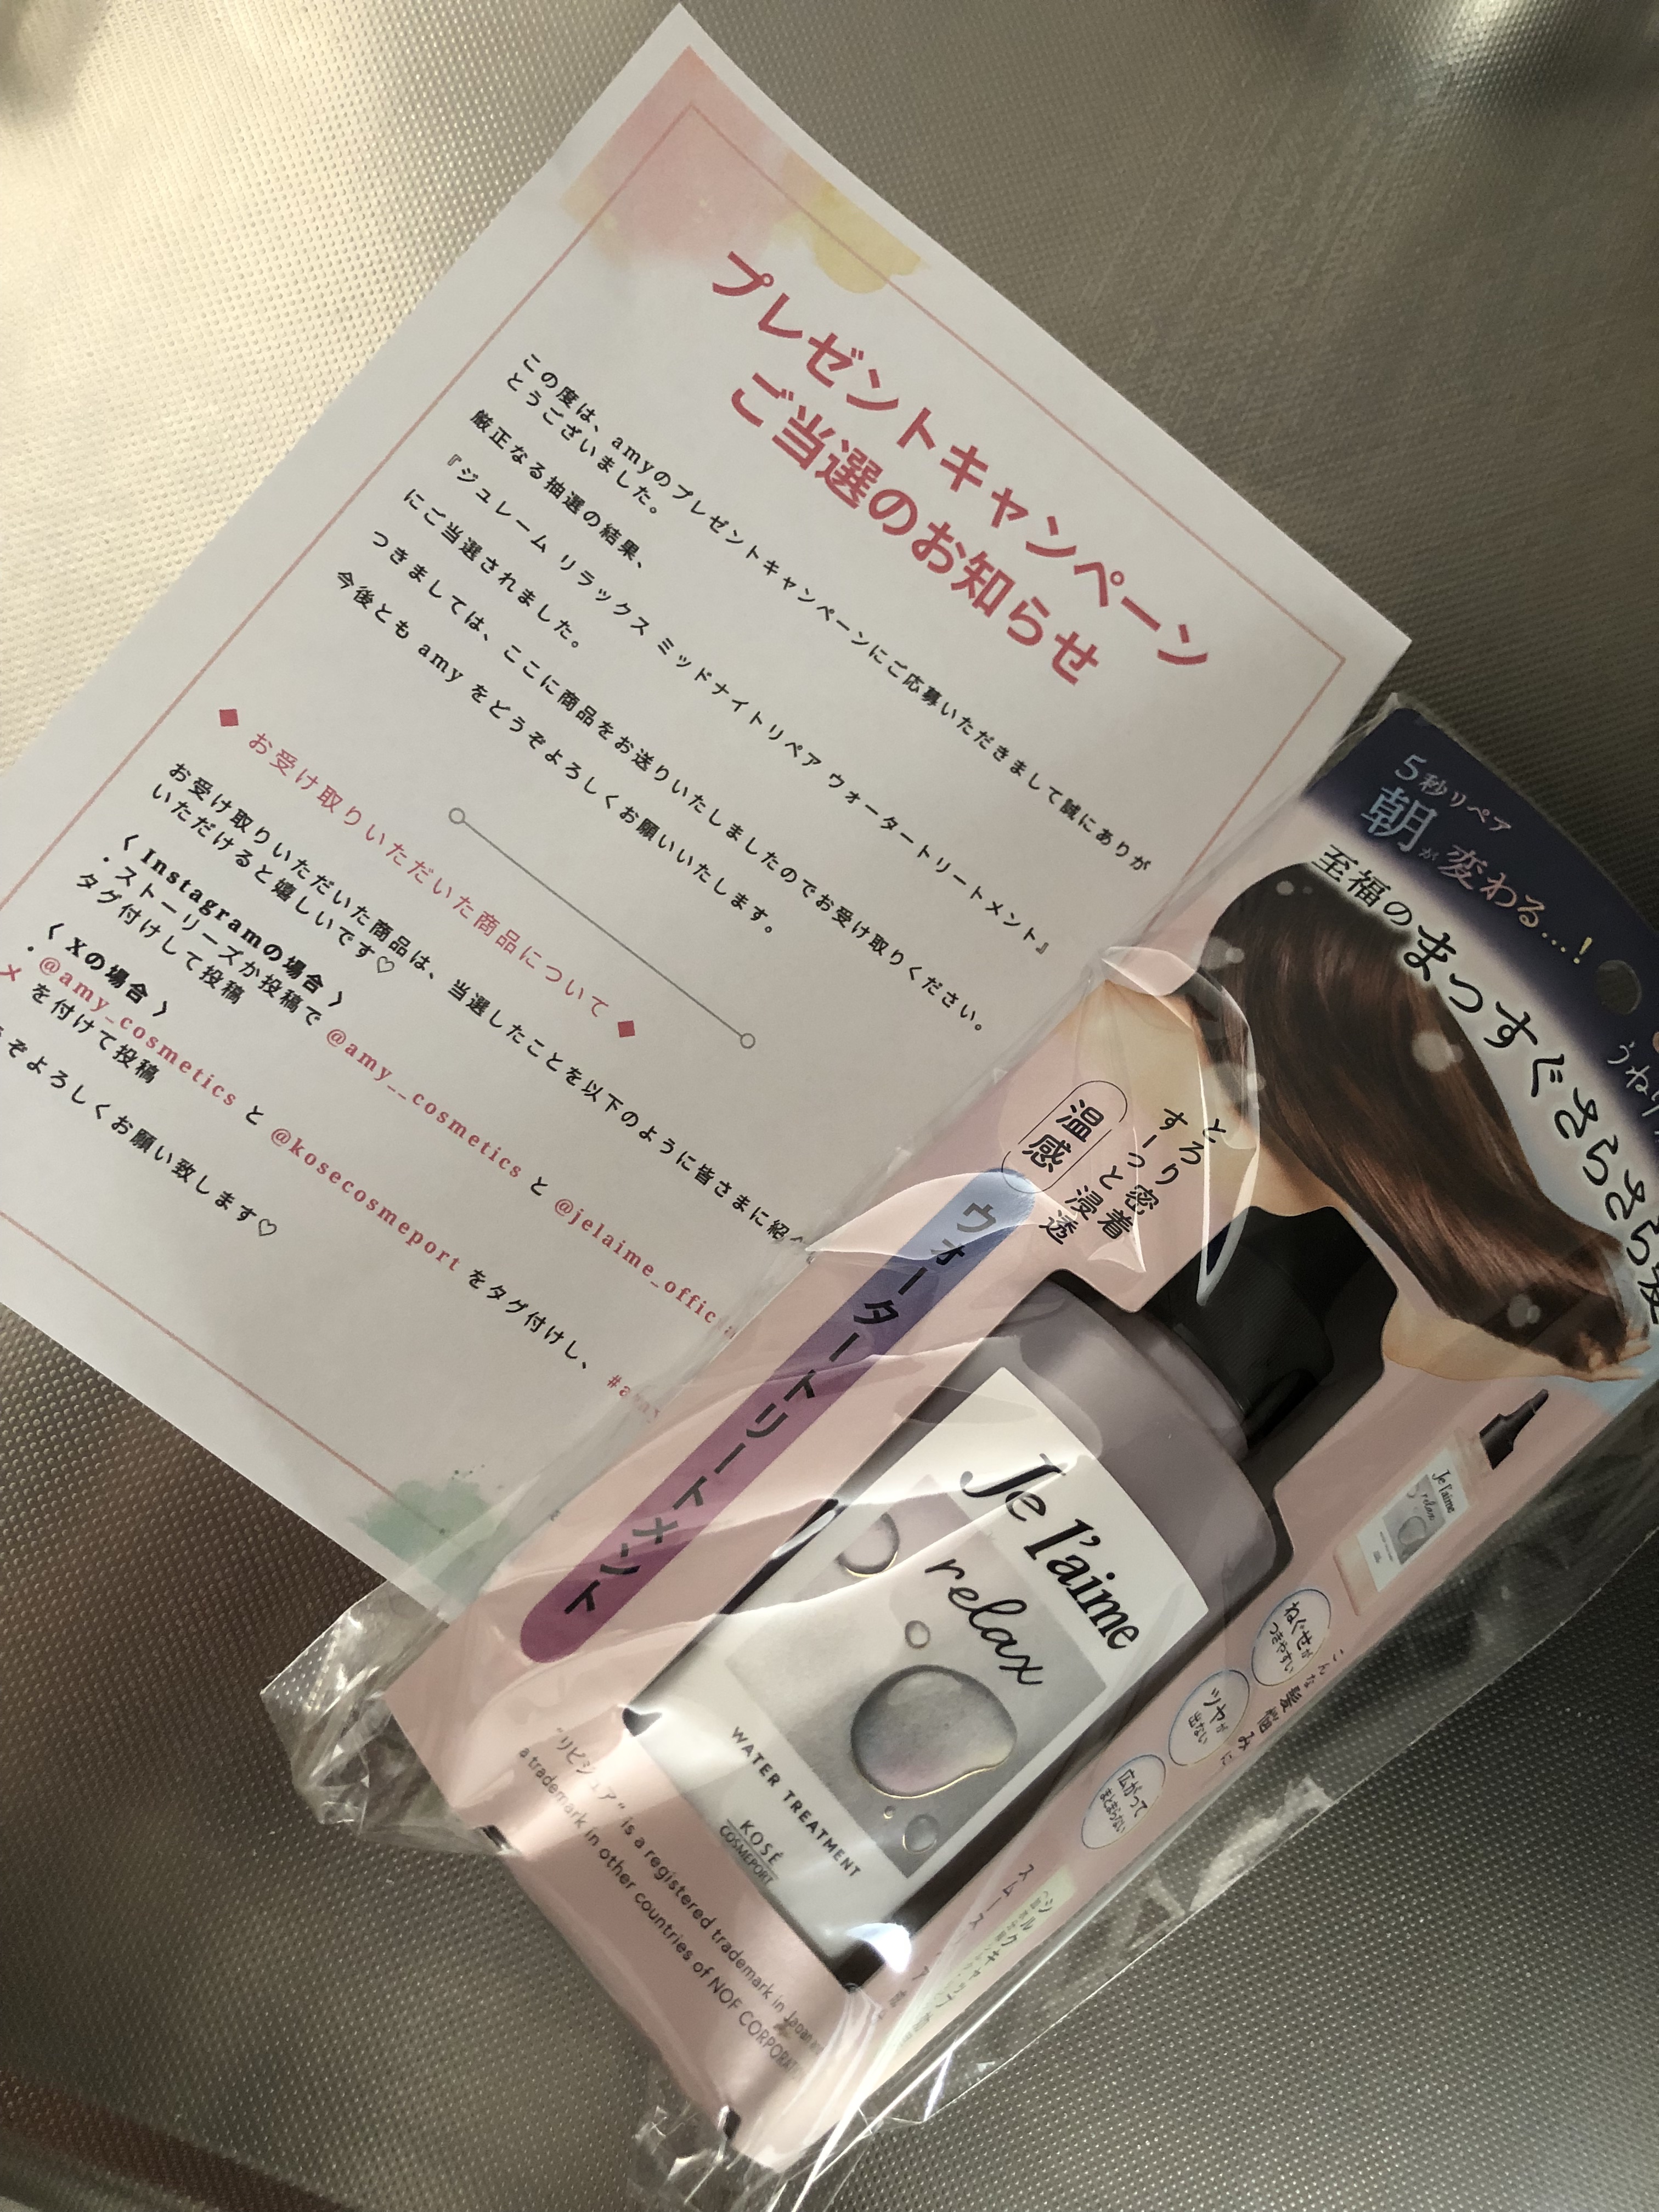 プレゼントキャンペーン
ご当選のお知らせ
この度は、amyのプレゼントキャンペーンにご応募いただきまして誠にありが
とうございました。
厳正なる抽選の結果、
『ジュレーム リラックス ミッドナイトリペア ウォータートリートメント』
にご当選されました。
つきましては、ここに商品をお送りいたしましたのでお受け取りください。
今後とも amy をどうぞよろしくお願いいたします。
◆ お受け取りいただいた商品について ◆
お受け取りいただいた商品は、当選したことを以下のように皆さまに紹
いただけると嬉しいです♡
〈 Instagramの場合 〉
・ストーリーズか投稿で @amy__cosmetics と @jelaime_offic
タグ付けして投稿
〈 Xの場合 〉
・@amy_cosmetics と @kosecosmeport をタグ付けし、
メ を付けて投稿
ぞよろしくお願い致します♡
5秒リペア
朝が変わる…!
至福のまっすぐさらさら髪
うねり
とろり密着
すーっと浸透
温感
ウォータートリートメント
Je l'aime
relax
WATER TREATMENT
KOSÉ
COSMEPORT
Je l'aime
relax
こんな髪悩みに
ねぐせが
つきやすい
ツヤが
出ない
広がって
まとまらない
スムース
"リピジュア" is a registered trademark in Japan
a trademark in other countries of NOF CORPORAT